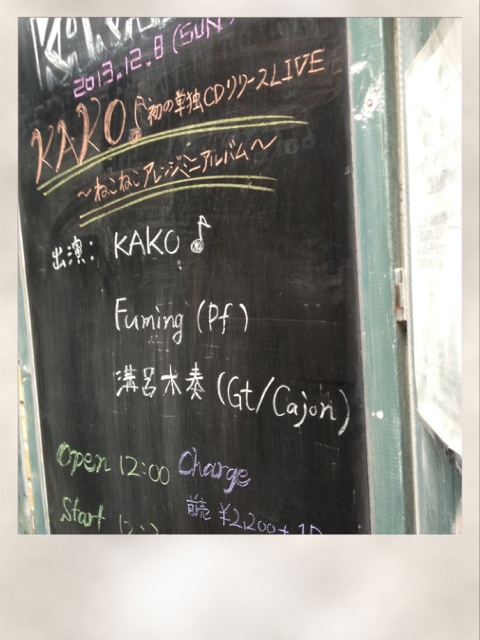 2013.12.8 (SUN)
KAKO♪初の単独CDリリースLIVE
～ねこねこアレンジミニアルバム～
出演: KAKO♪
Fuming (Pf)
溝呂木奏 (Gt/Cajon)
Open 12:00 Charge
Start
前売 ¥2,200+1D